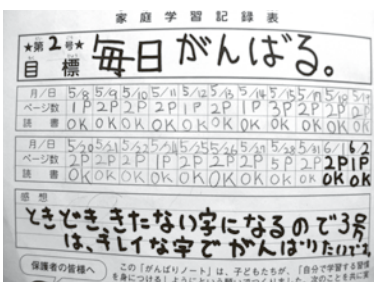 家庭学習記録表
★第2号★
目標 毎日がんばる。
月/日 5/8 5/9 5/10 5/11 5/12 5/13 5/14 5/15 5/17 5/18 5/19
ページ数 1P 2P 2P 2P 1P 2P 1P 3P 2P 2P 2P
読書 OK OK OK OK OK OK OK OK OK OK OK
月/日 5/20 5/21 5/22 5/24 5/25 5/26 5/27 5/28 5/31 6/1 6/2
ページ数 2P 2P 2P 1P 2P 2P 2P 2P 5P 2P 2P 1P
読書 OK OK OK OK OK OK OK OK OK OK OK OK
感想
ときどき、きたない字になるので3号
は、キレイな字でがんばりたいです。
保護者の皆様へ
この「がんばりノート」は、子どもたちが、「自分で学習する習慣
を身につける」ように